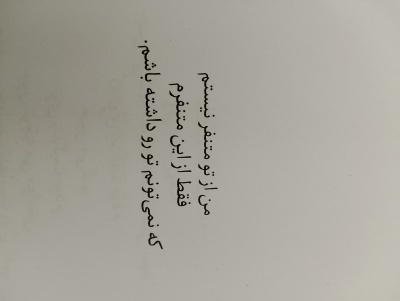 من از تو متنفر نیستم
فقط از این متنفرم
که نمی‌تونم تو رو داشته باشم.